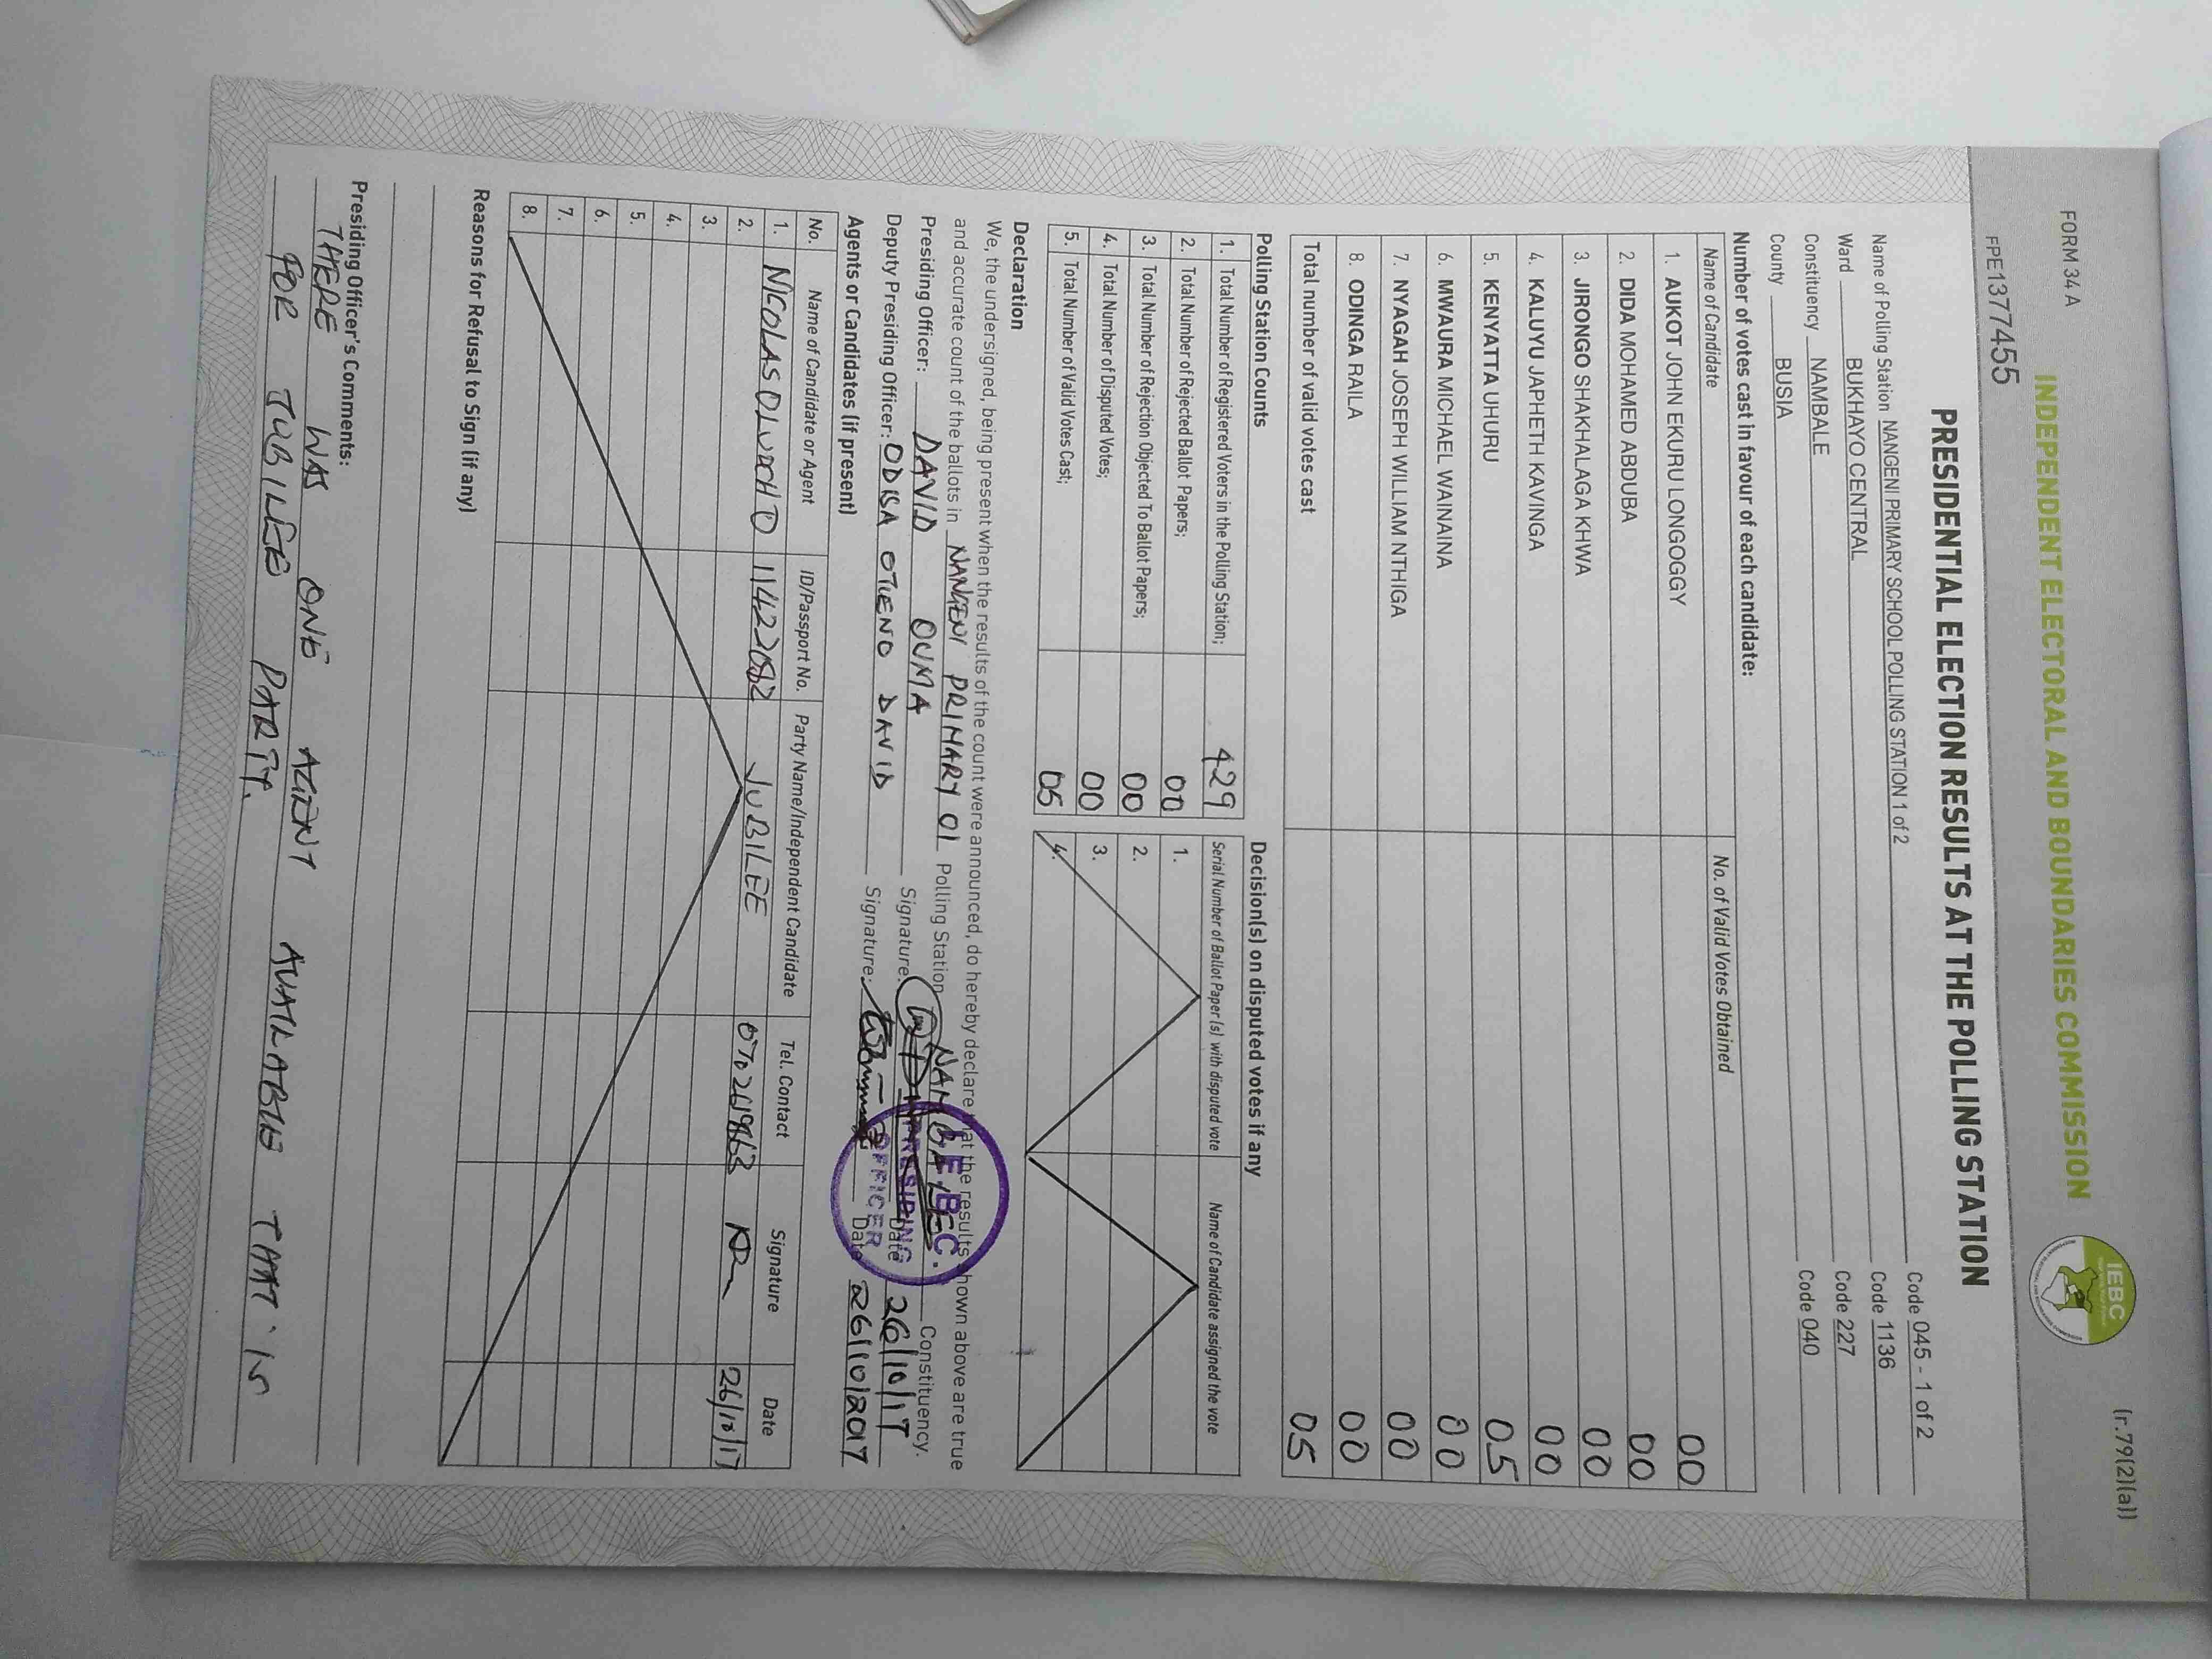 FORM 34 A
(r.79(2)(a))
INDEPENDENT ELECTORAL AND BOUNDARIES COMMISSION
IEBC
FPE1377455
PRESIDENTIAL ELECTION RESULTS AT THE POLLING STATION
Name of Polling Station NANGENI PRIMARY SCHOOL POLLING STATION 1 of 2 Code 045 - 1 of 2
Ward BUKHAYO CENTRAL Code 1136
Constituency NAMBALE Code 227
County BUSIA Code 040
Number of votes cast in favour of each candidate:
Name of Candidate No. of Valid Votes Obtained
1. AUKOT JOHN EKURU LONGOGGY 00
2. DIDA MOHAMED ABDUBA 00
3. JIRONGO SHAKHALAGA KHWA 00
4. KALUYU JAPHETH KAVINGA 00
5. KENYATTA UHURU 05
6. MWAURA MICHAEL WAINAINA 00
7. NYAGAH JOSEPH WILLIAM NTHIGA 00
8. ODINGA RAILA 00
Total number of valid votes cast 05
Polling Station Counts
1. Total Number of Registered Voters in the Polling Station; 429
2. Total Number of Rejected Ballot Papers; 00
3. Total Number of Rejection Objected To Ballot Papers; 00
4. Total Number of Disputed Votes; 00
5. Total Number of Valid Votes Cast; 05
Decision(s) on disputed votes if any
Serial Number of Ballot Paper (s) with disputed vote Name of Candidate assigned the vote
1.
2.
3.
4.
Declaration
We, the undersigned, being present when the results of the count were announced, do hereby declare that the results shown above are true
and accurate count of the ballots in NANGENI PRIMARY 01 Polling Station NAMBALE Constituency.
Presiding Officer: DAVID OUMA Signature: Date 26/10/17
Deputy Presiding Officer: ODISA OTIENO DAVID Signature: Date 26/10/2017
I.E.B.C.
PRESIDING
OFFICER
Agents or Candidates (if present)
No. Name of Candidate or Agent ID/Passport No. Party Name/Independent Candidate Tel. Contact Signature Date
1. NICOLAS OLUOCH O 11422082 JUBILEE 26/10/17
2.
3.
4.
5.
6.
7.
8.
Reasons for Refusal to Sign (if any)
Presiding Officer's Comments:
THERE WAS ONE AGENT AVAILABLE THAT IS
FOR JUBILEE PARTY.